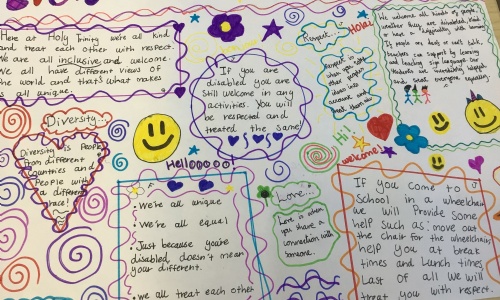 Here at Holy Trinity we're all kind
and treat each other with respect.
We are all inclusive and welcome.
We all have different views of
the world and that's what makes
us all unique.
Diversity
Diversity is People
from different
countries and
People with
a different
race!
If you are
disabled you are
still welcome in any
activities. You will
be respected and
treated the same!
Hellooooo!
• We're all unique
• We're all equal
• Just because you're
disabled, doesn't mean
your different.
• we all treat each other
Respect
Respect is
when you
take
people's
ideas into
account and
Hola!
We welcome all kinds of people
whether they are disabled, kind
or have a
If people are deaf or can't talk,
teachers can support by learning
and teaching sign language. Our
students and
and treat everyone equally.
Hi!
welcome
Love
Love is when
you have a
connection with
someone.
If you come to
School in a wheelchair
we will Provide some
help such as: move out
the chair for the wheelchair,
help you at break
times and lunch times
Last of all we will
treat you with respect.